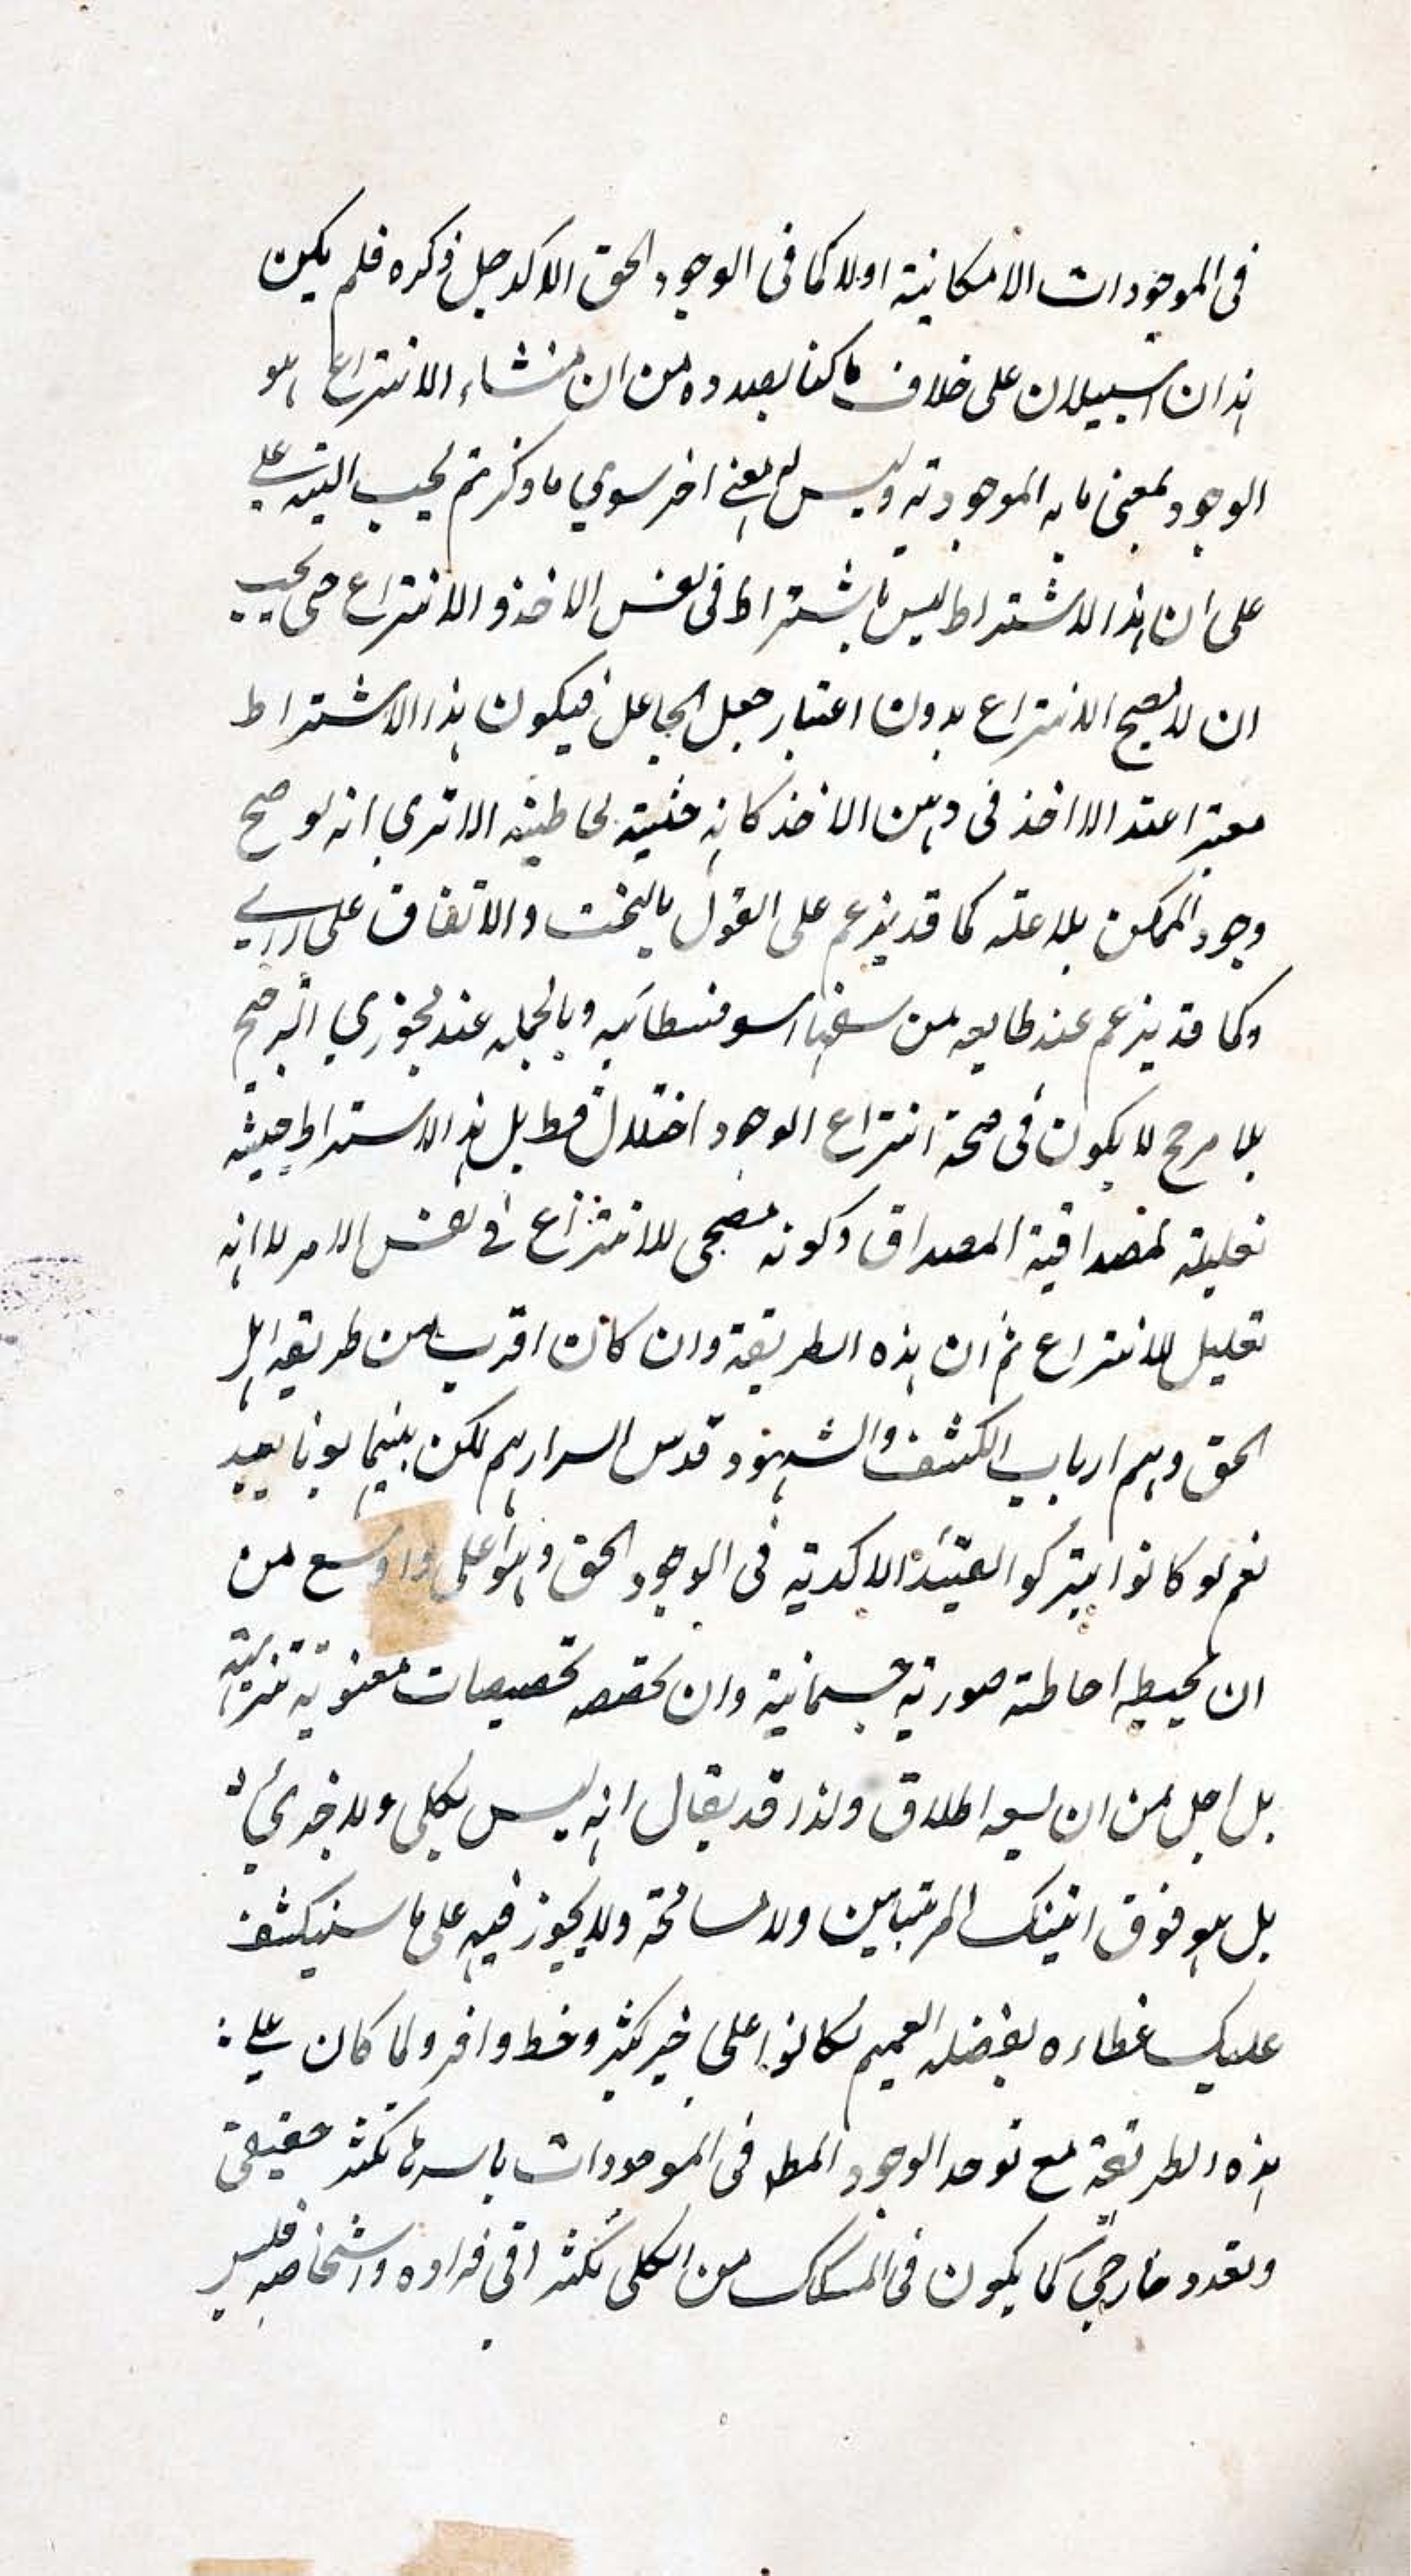 في الموجودات الامكانية اولا كما في الوجود الحق الاكد جل ذكره فلم يكن
هذان السبيلان على خلاف ما كنا بصدده من ان منشاء الانتزاع هو
الوجود بمعنى ما به الموجودية وليس له معنى اخر سوي ما ذكر ثم يجب التنبه علي
على ان هذا الاشتراط ليس باشتراط في نفس الاخذ و الانتزاع حتى يجب
ان لا يصح الانتزاع بدون اعتبار جعل الجاعل فيكون هذا الاشتراط
معتبرا عند الاخذ في ذهن الاخذ كانه حيثية لحاظية الا ترى انه لو صح
وجود الممكن بلا علة كما قد يزعم على القول بالبخت والاتفاق على راي
وكما قد يزعم عند طايفه من سفها السوفسطائيه وبالجمله عند مجوزي الترجيح
بلا مرجح لا يكون في صحة انتزاع الوجود اختلال قط بل هذا الاشتراط حيثية
تعليلية لمصداقية المصداق وكونه مصححا للانتزاع في نفس الامر لا انه
تعليل للانتزاع ثم ان هذه الطريقة وان كان اقرب من طريقه اهل
الحق وهم ارباب الكشف والشهود قدس اسرارهم لكن بينهما بونا بعيد
نعم لو كانوا يتركوا القيد الاكدية في الوجود الحق وهو اعلى و اوسع من
ان يحيطه احاطة صورية جسمانية وان يخصصه تخصيصات معنوية تنزيهية
بل اجل من ان يسعه اطلاق ولذا قد يقال انه ليس بكلى ولا جزئي
بل هو فوق اتينك المرتبتين ولا مسامحة ولا تجوز فيه على ما سينكشف
عليك غطاءه بفضله العميم لكانوا على خير كثير وحظ وافر ولما كان علي
هذه الطريقة مع توحد الوجود المطلق في الموجودات باسرها تكثر حقيقى
وتعدد خارجى كما يكون في المشكك من الكلى تكثر افي فراده واشخاصه فليس